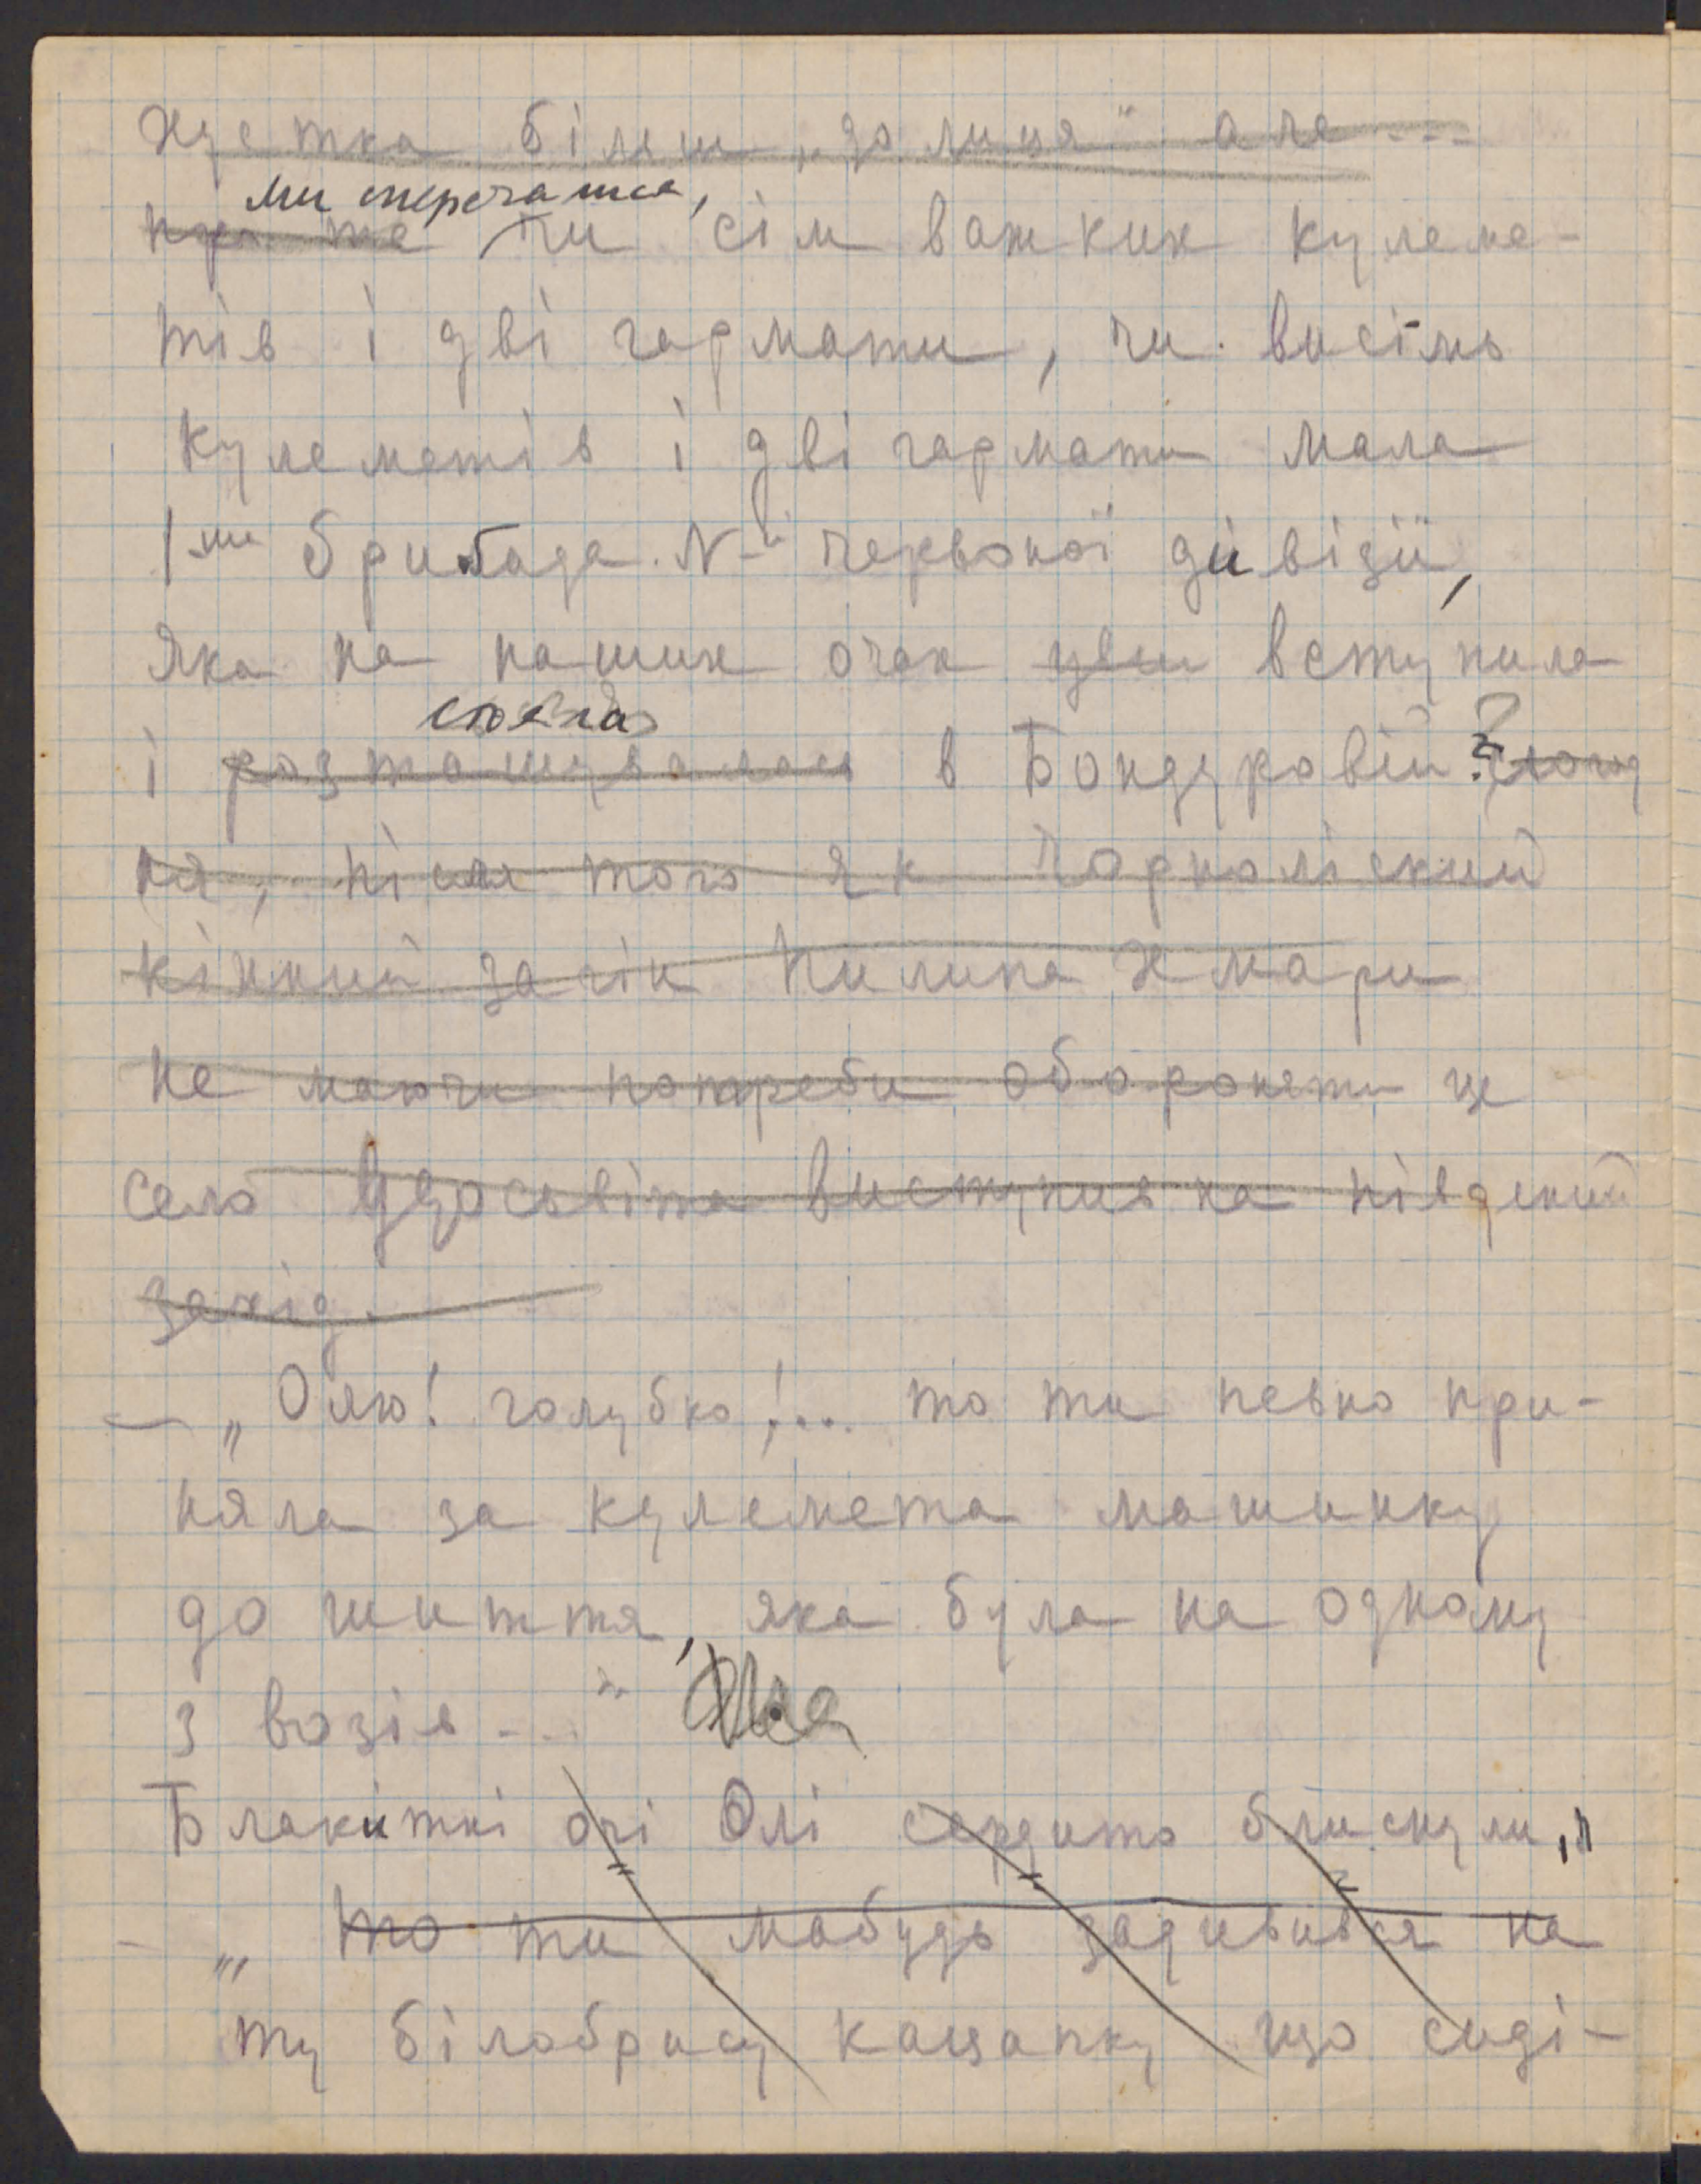 хустка більш „до лиця" але ...
ми сперечались,
про те чи сім важких кулеме-
тів і дві гармати, чи висім
кулеметів і дві гармати мала
1ша бригада N-ої червоної дивізії,
яка на наших очах вступила
стояла
і розташувалась в Бондуровій?
ня, після того як Чорноліский
кінний загін Пилипа Хмари
не маючи потреби обороняти це
село удосвіта виступив на південий
захід.
— „Олю! голубко!... то ти певно при-
няла за кулемета машинку
до шиття, яка була на одному
з возів ..."
Блакитні очі Олі сердито блиснули,
- „ то ти мабудь задивився на
ту білобрису кацапку що сиді-